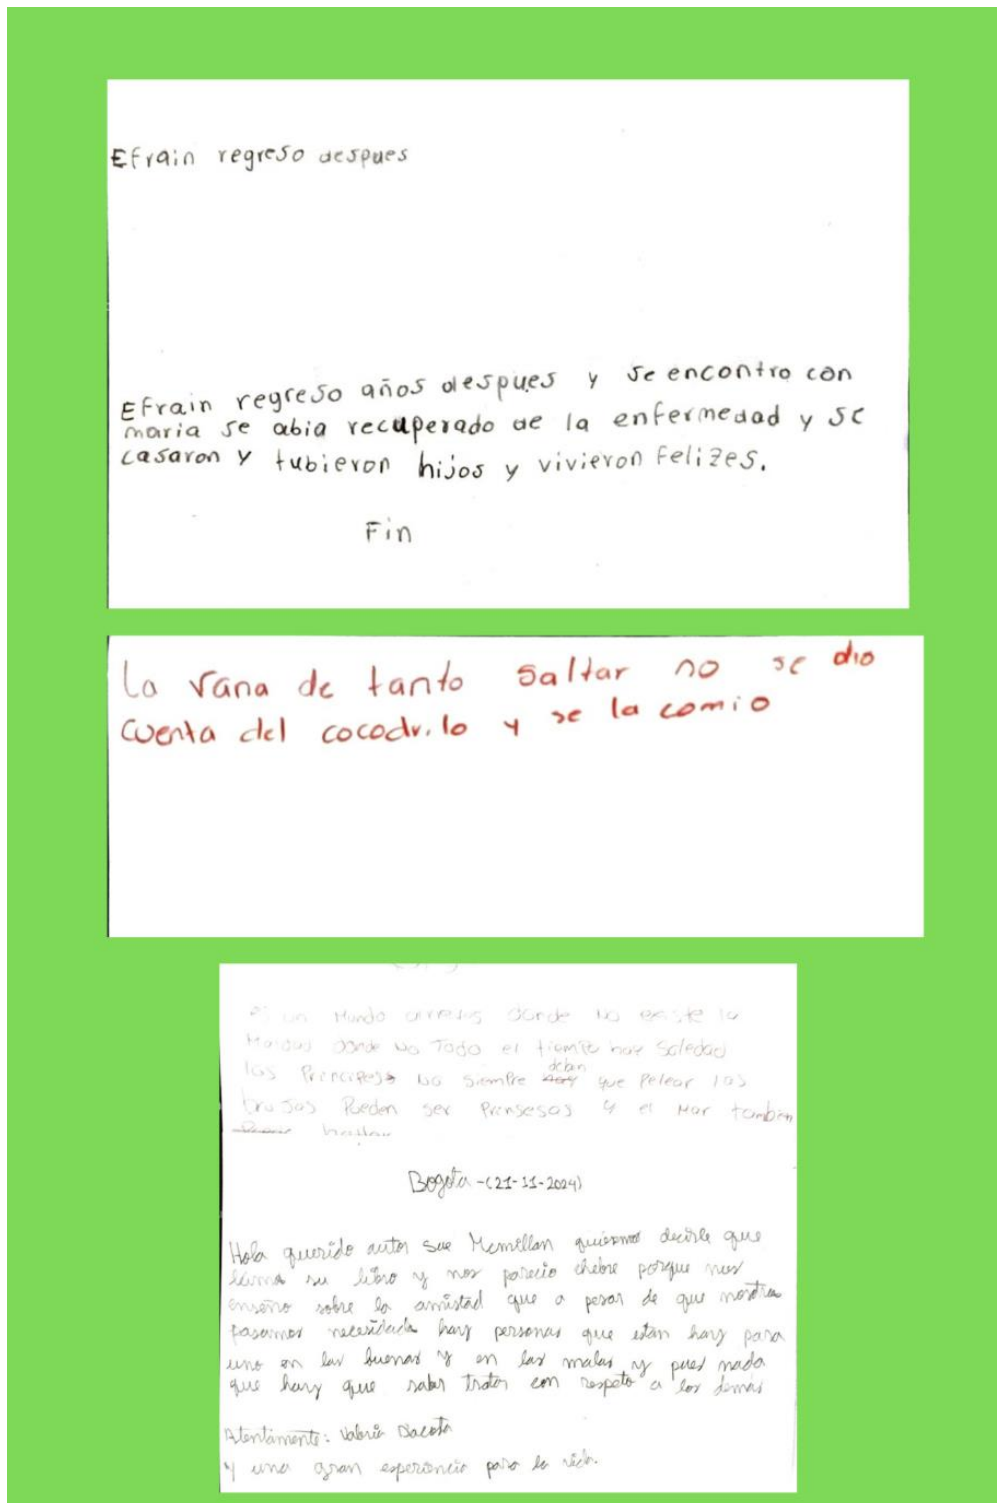 Efrain regreso despues
Efrain regreso años despues y se encontro con
maria se abia recuperado de la enfermedad y se
casaron y tubieron hijos y vivieron felizes.
Fin
La rana de tanto saltar no se dio
cuenta del cocodrilo y se la comio
un Mundo donde no existe la
donde No Todo el tiempo hay Soledad
las no siempre deban que Pelear las
brujas Pueden ser Prinsesas y el Mar tambien
Bogota -(21-11-2024)
Hola querido autor Sue Mcmillan quisiermos decirle que
su libro y nos parecio chebre porque nos
enseño sobre la amistad que a pesar de que nosotros
pasamos hay personas que están hay para
uno en las buenas y en las malas y pues nada
que hay que saber tratar con respeto a los demás
Atentamente: Valeria
y una gran experiencia para la vida.